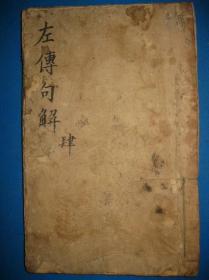 左傳句解
肆